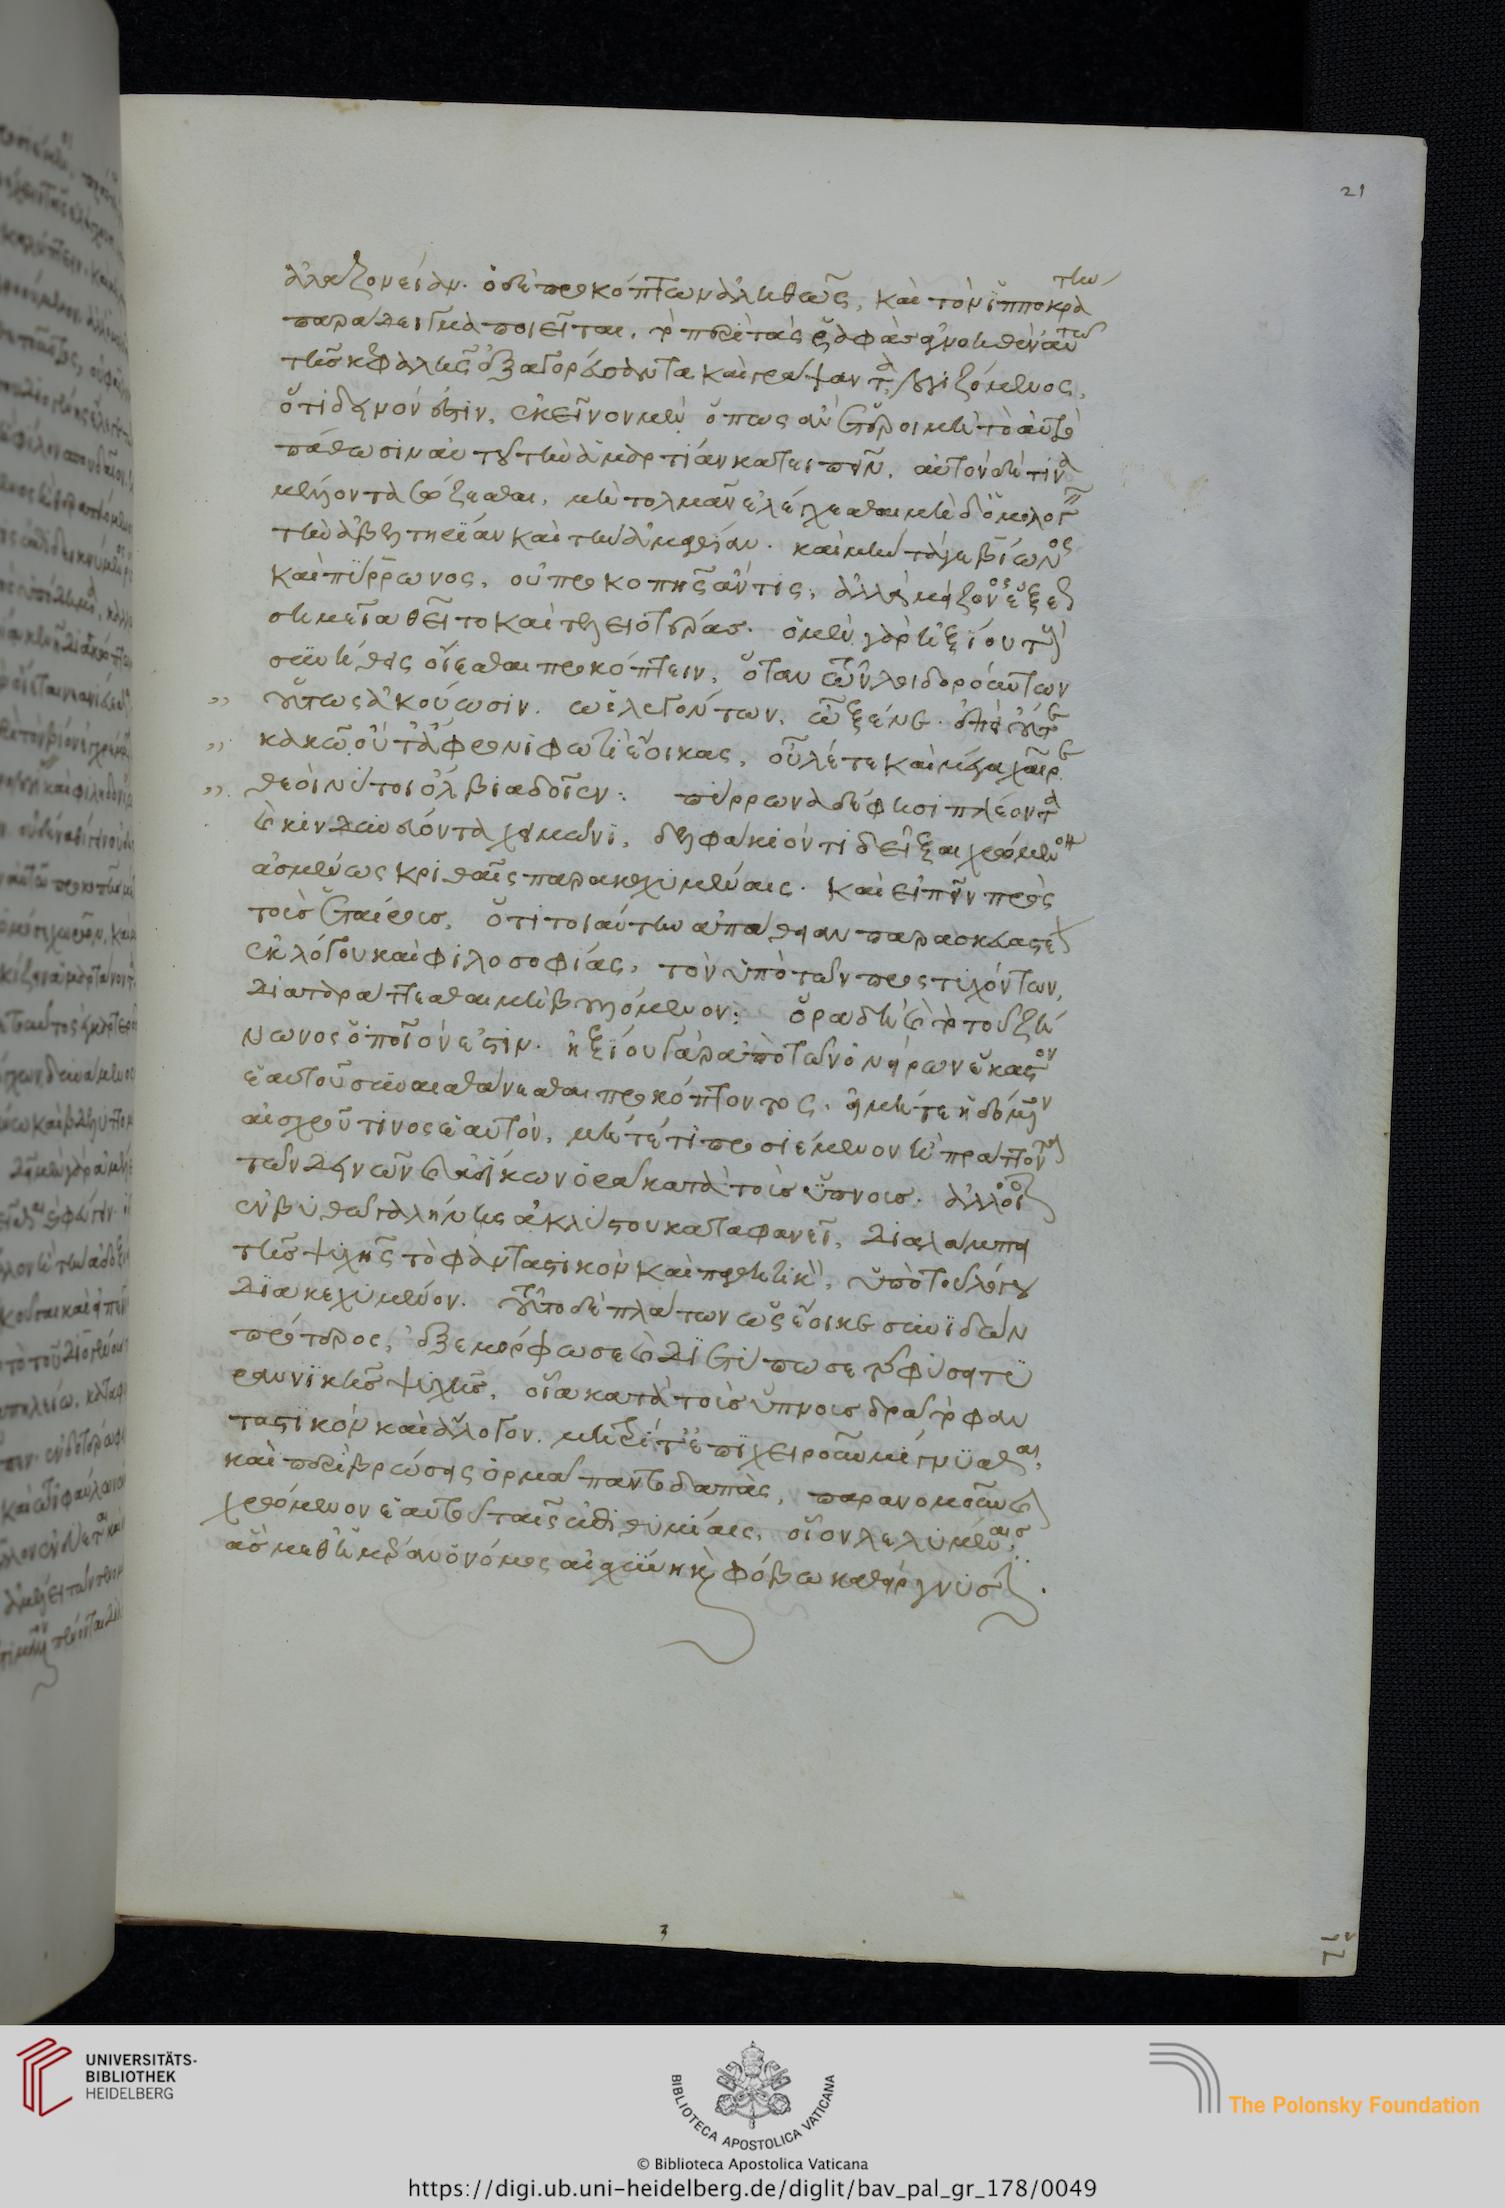 ἀλαζονείαν. ὁ δὲ προκόπτων ἀληθῶς, καὶ τὸν ἱπποκράτην
παράδειγμα ποιεῖται, τὸ περὶ τὰς ῥαφὰς ἀγνοηθὲν αὐτῶ
τῆς κεφαλῆς ἐξαγορεύσαντα καὶ γράψαντα, λογιζόμενος,
ὅτι δεινόν ἐστιν, ἐκεῖνον μὲν ὅπως ἂν ἕτεροι μὴ τὸ αὐτὸ
πάθωσιν αὑτοῦ τὴν ἁμαρτίαν κατειπεῖν, αὐτὸν δέ τινα
μέλλοντα σώζεσθαι, μὴ τολμᾶν ἐλέγχεσθαι μηδ' ὁμολογεῖν
τὴν ἀβελτηρίαν καὶ τὴν ἀμαθίαν. καὶ μὴν τά γε βίωνος
καὶ πύρρωνος, οὐ προκοπῆς ἄν τις, ἀλλὰ μείζονος ἕξεως
σημεῖα θεῖτο καὶ τελειοτέρας. ὁ μὲν γὰρ ἠξίου τοὺς
συνήθεις οἴεσθαι προκόπτειν, ὅταν τῶν λοιδορούντων
οὕτως ἀκούωσιν. ὡς λεγόντων, ὦ ξεῖνε. ἐπεὶ οὔτε
κακῶ οὔτ' ἄφρονι φωτὶ ἔοικας, οὖλέ τε καὶ μέγα χαῖρε
θεοὶ νύ τοι ὄλβια δοῖεν: πύρρωνα δέ φησι πλέοντα
καὶ κινδυνεύοντα χειμῶνι, δελφάκιόν τι δεῖξαι χρώμενον
ἀσμένως κριθαῖς παρακεχυμέναις. καὶ εἰπεῖν πρὸς
τοὺς ἑταίρους, ὅτι τοιαύτην ἀπάθειαν παρασκευαστέον
ἐκ λόγου καὶ φιλοσοφίας, τὸν ὑπὸ τῶν προστυχόντων,
διαταράττεσθαι μὴ βουλόμενον: ὅρα δὴ καὶ τὸ τοῦ ζή
νωνος ὁποῖόν ἐστιν. ἠξίου γὰρ ἀπὸ τῶν ὀνείρων ἕκαστον
ἑαυτοῦ συναισθάνεσθαι προκόπτοντος, εἰ μήτε ἡδόμενον
αἰσχρῶ τινος ἑαυτὸν, μήτέ τι προσιέμενον ἢ πράττοντα
τῶν δεινῶν καὶ ἀδίκων ὁρᾶ κατὰ τοὺς ὕπνους. ἀλλ' οἷον
ἐν βυθῶ γαλήνης ἀκλύστου καταφανεῖ, διαλάμπει
τῆς ψυχῆς τὸ φανταστικὸν καὶ παθητικὸν, ὑπὸ τοῦ λόγου
διακεχυμένον. τοῦτο δὲ πλάτων ὡς ἔοικε συνιδὼν
πρότερος, ἐξεμόρφωσε καὶ διετύπωσε τῆς φύσει τυ
ραννικῆς ψυχῆς, οἷα κατὰ τοὺς ὕπνους δρᾶ τὸ φαν
ταστικὸν καὶ ἄλογον. μητρί τ' ἐπιχειροῦν μίγνυσθαι,
καὶ περὶ βρώσεις ὁρμᾶ παντοδαπὰς, παρανομοῦν καὶ
χρώμενον ἑαυτοῦ ταῖς ἐπιθυμίαις, οἷον λελυμέναις,
ἃς μεθ' ἡμέραν ὁ νόμος αἰσχύνη καὶ φόβω καθείργνυσι.
21
3
UNIVERSITÄTS-
BIBLIOTHEK
HEIDELBERG
BIBLIOTECA APOSTOLICA VATICANA
The Polonsky Foundation
© Biblioteca Apostolica Vaticana
https://digi.ub.uni-heidelberg.de/diglit/bav_pal_gr_178/0049